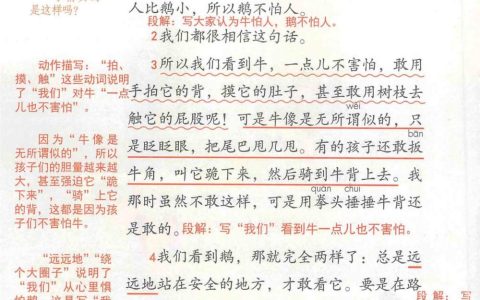 是这样吗？
动作描写：“拍、
摸、触”这些动词说明
了“我们”对牛“一点
儿也不害怕”。
因为“牛像是
无所谓似的”，所以
孩子们的胆量越来越
大，甚至强迫它“跪
下来”，“骑”上它
的背，这都是因为孩
子们不害怕牛。
“远远地”“绕
个大圈子”说明了
“我们”从心里惧
人比鹅小，所以鹅不怕人。
段解：写大家认为牛怕人，鹅不怕人。
2我们都很相信这句话。
3所以我们看到牛，一点儿不害怕，敢用
手拍它的背，摸它的肚子，甚至敢用树枝去
wèi
触它的屁股呢！可是牛像是无所谓似的，只
bān
是眨眨眼，把尾巴甩几甩。有的孩子还敢扳
牛角，叫它跪下来，然后骑到牛背上去。我
quán chuí
那时虽然不敢这样，可是用拳头捶捶牛背还
是敢的。段解：写“我们”看到牛一点儿也不害怕。
4我们看到鹅，那就完全两样了：总是远
远地站在安全的地方，才敢看它。要是在路
段解：写